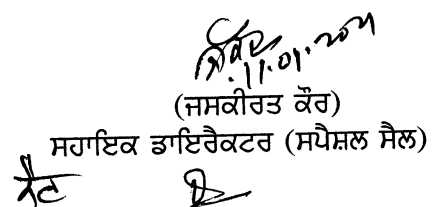 11.01.2021
(ਜਸਕੀਰਤ ਕੌਰ)
ਸਹਾਇਕ ਡਾਇਰੈਕਟਰ (ਸਪੈਸ਼ਲ ਸੈਲ)